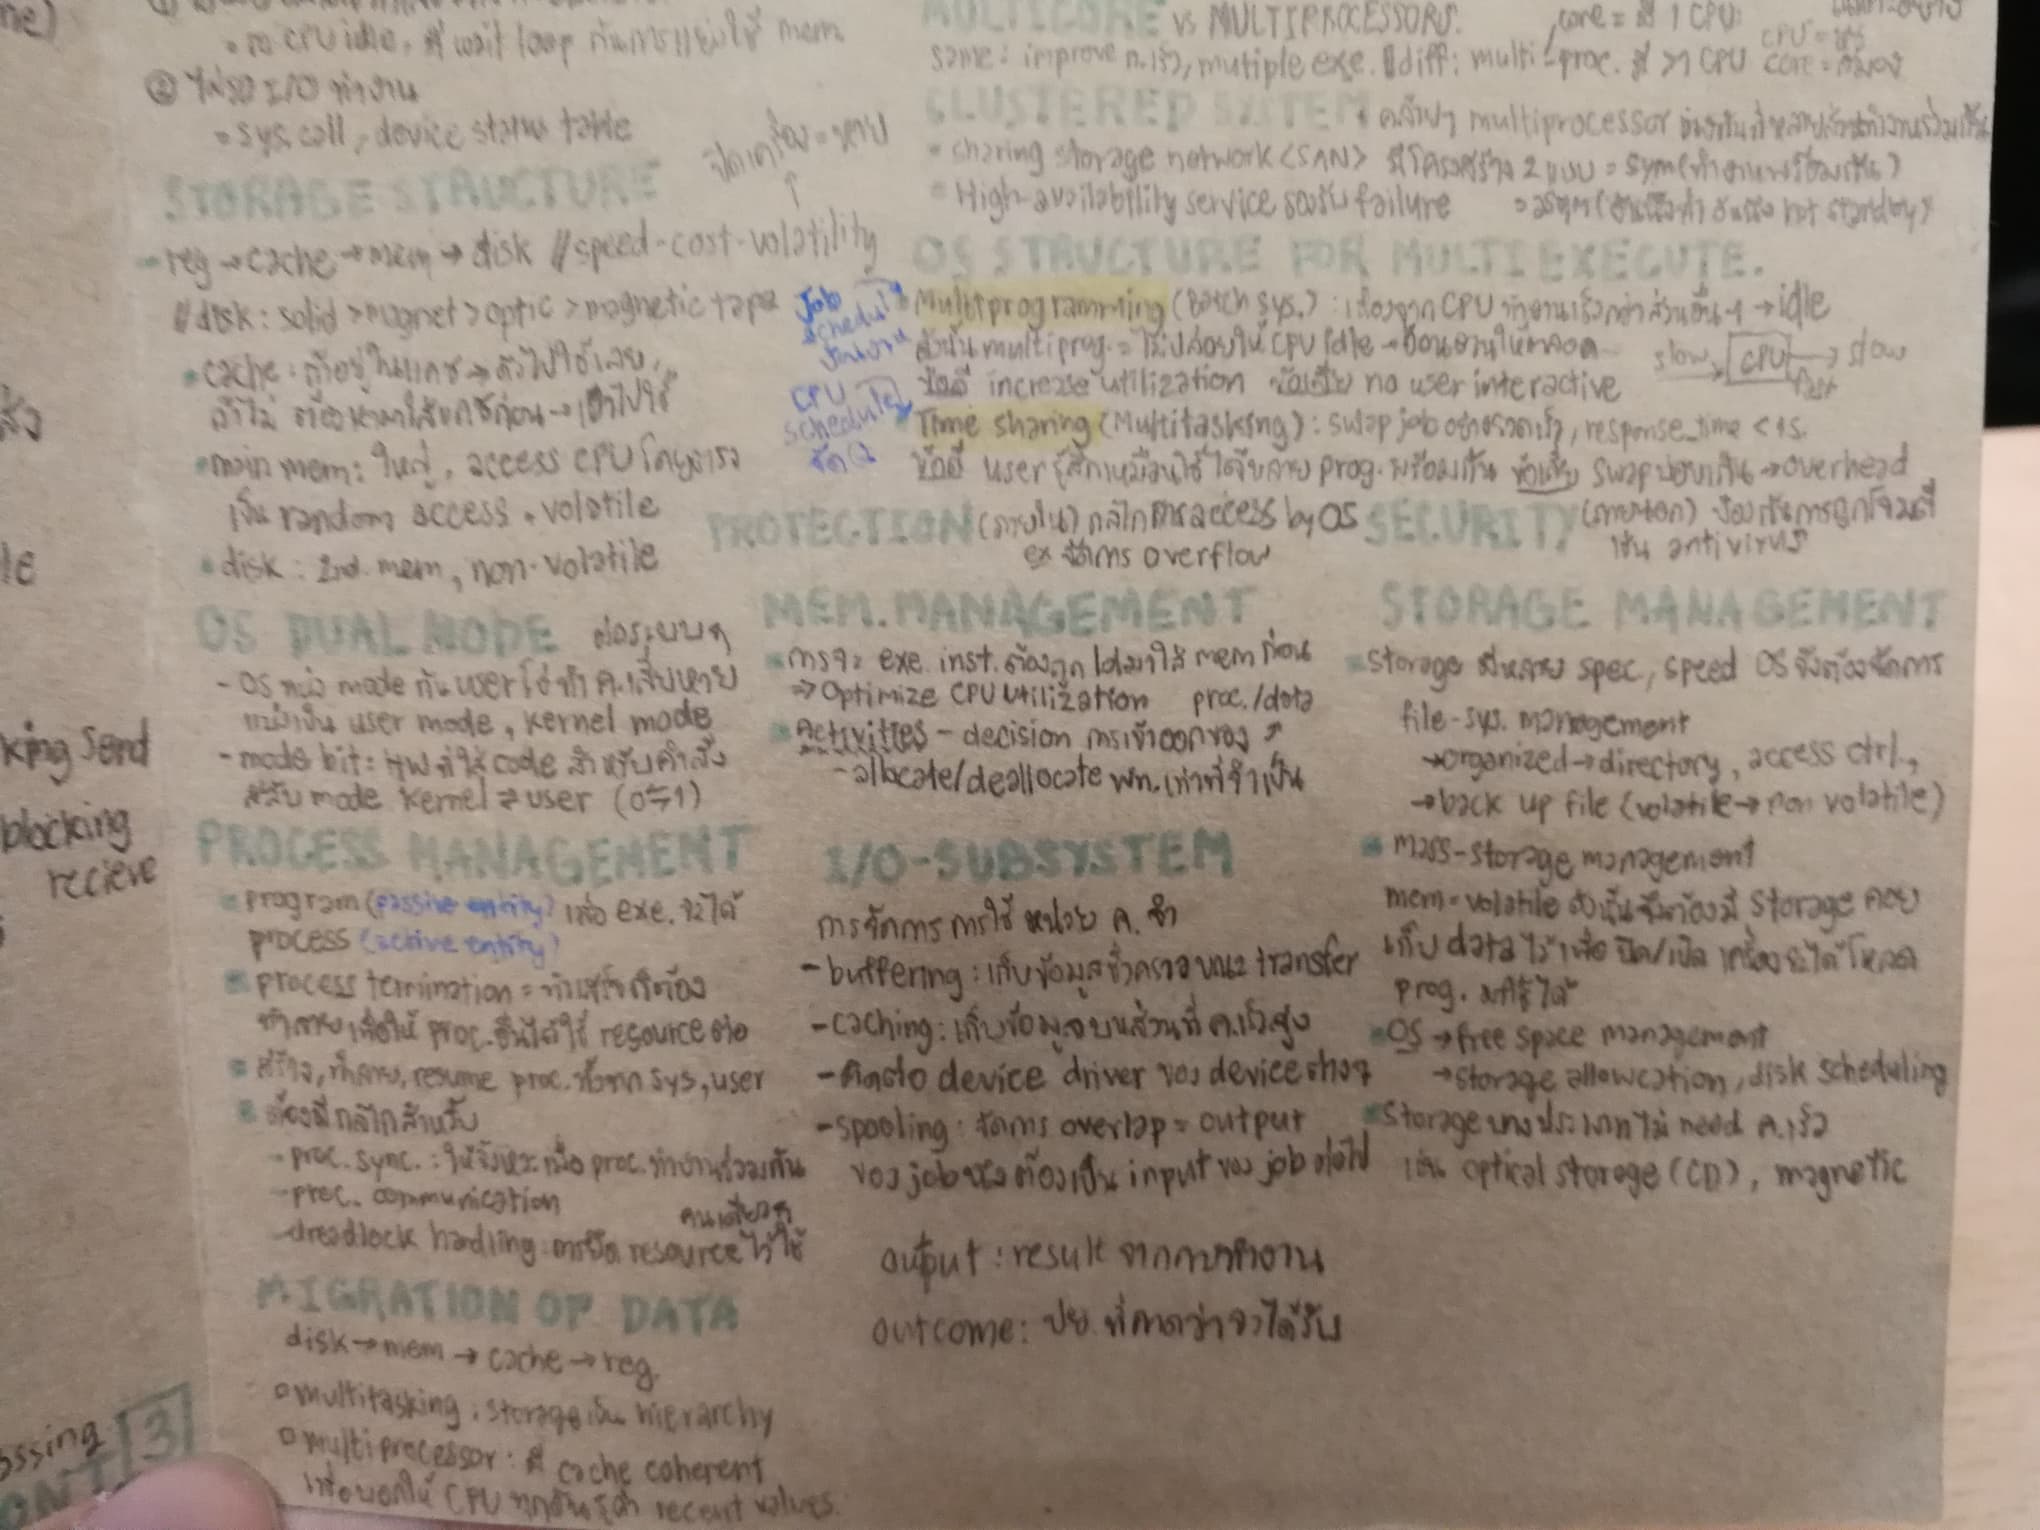 = รอ CPU idle, มี wait loop กันการแย่งใช้ mem
② ไม่รอ I/O ทำงาน
= sys.call, device status table
STORAGE STRUCTURE
ปิดเครื่อง = หาย
reg → cache → mem → disk // speed-cost-volatility
// disk : solid > magnet > optic > magnetic tape
cache : ถ้าอยู่ในแคช → ดึงไปใช้เลย
ถ้าไม่ ต้องหามาใส่แคชก่อน → เอาไปใช้
main mem : ใหญ่, access CPU โดยตรง
เป็น random access, volatile
disk : 2nd. mem, non-volatile
OS DUAL MODE ต่อระบบๆ
- OS แบ่ง mode กัน user โง่ทำ ค.เสียหาย
แบ่งเป็น user mode, kernel mode
- mode bit : code สำหรับคำสั่ง
สลับ mode kernel ⇌ user (0⇌1)
PROCESS MANAGEMENT
program (passive entity) เมื่อ exe. จะได้
process (active entity)
process termination = ทำเสร็จก็ต้อง
ทำลายเพื่อให้ proc. อื่นได้ใช้ resource ต่อ
สร้าง, ทำลาย, resume proc. ทั้งจาก sys, user
ต้องมีกลไกสำหรับ
- proc. sync. : ให้จังหวะเมื่อ proc. ทำงานร่วมกัน
- proc. communication
คนเดียวๆ
- dreadlock handling : การยึด resource ไว้ใช้
MIGRATION OF DATA
disk → mem → cache → reg.
multitasking : storage เป็น hierarchy
multiprocessor : มี cache coherent
เพื่อบอกให้ CPU ทุกอันรู้ค่า recent values.
MULTICORE vs MULTIPROCESSORS.
core = มี 1 CPU
same : improve ค.เร็ว, mutiple exe. // diff : multi-proc. มี >1 CPU
CLUSTERED SYSTEM คล้ายๆ multiprocessor
sharing storage network <SAN> มีโครงสร้าง 2 แบบ = sym (ทำงานพร้อมกัน)
High-availability service รองรับ failure = asym (อันนึงทำ อันนึง hot standby)
OS STRUCTURE FOR MULTI EXECUTE.
Job schedule
Multiprogramming (Batch sys.) : เนื่องจาก CPU ทำงานเร็วกว่าส่วนอื่นๆ → idle
ดังนั้น multiprog. = ไม่ปล่อยให้ CPU idle → ป้อนงานให้ตลอด
slow → CPU → slow
fast
ข้อดี increase utilization ข้อเสีย no user interactive
CPU schedule จัด Q
Time sharing (Multitasking) : swap job อย่างรวดเร็ว, response_time <1s.
ข้อดี user รู้สึกเหมือนใช้ได้หลาย prog. พร้อมกัน ข้อเสีย swap บ่อยเกิน → overhead
PROTECTION (ภายใน) กลไกการ access by OS
ex จัดการ overflow
SECURITY (ภายนอก) ป้องกันการถูกโจมตี
เช่น antivirus
MEM. MANAGEMENT
การจะ exe. inst. ต้องถูกโหลดมาใส่ mem ก่อน
⇒ Optimize CPU utilization proc./data
Activities - decision การเข้าออกของ ↗
- allocate/deallocate พท.เท่าที่จำเป็น
I/O-SUBSYSTEM
การจัดการการใช้ หน่วย ค.จำ
- buffering : เก็บข้อมูลชั่วคราวขณะ transfer
- caching : เก็บข้อมูลบนส่วนที่ ค.เร็วสูง
- ติดต่อ device driver ของ device ต่างๆ
- spooling : จัดการ overlap = output
ของ job นึงต้องเป็น input ของ job ต่อไป
output : result จากการทำงาน
outcome : ปย. ที่คาดว่าจะได้รับ
STORAGE MANAGEMENT
storage มีหลาย spec, speed OS จึงต้องจัดการ
file-sys. management
→ organized → directory, access ctrl.,
→ back up file (volatile → non volatile)
mass-storage management
mem = volatile ดังนั้นจึงต้องมี storage คอย
เก็บ data ไว้เพื่อ ปิด/เปิด เครื่องจะได้โหลด
prog. มาใช้ได้
OS → free space management
→ storage allowcation, disk scheduling
storage บางประเภทไม่ need ค.เร็ว
เช่น optical storage (CD), magnetic
king send
blocking
recieve
3